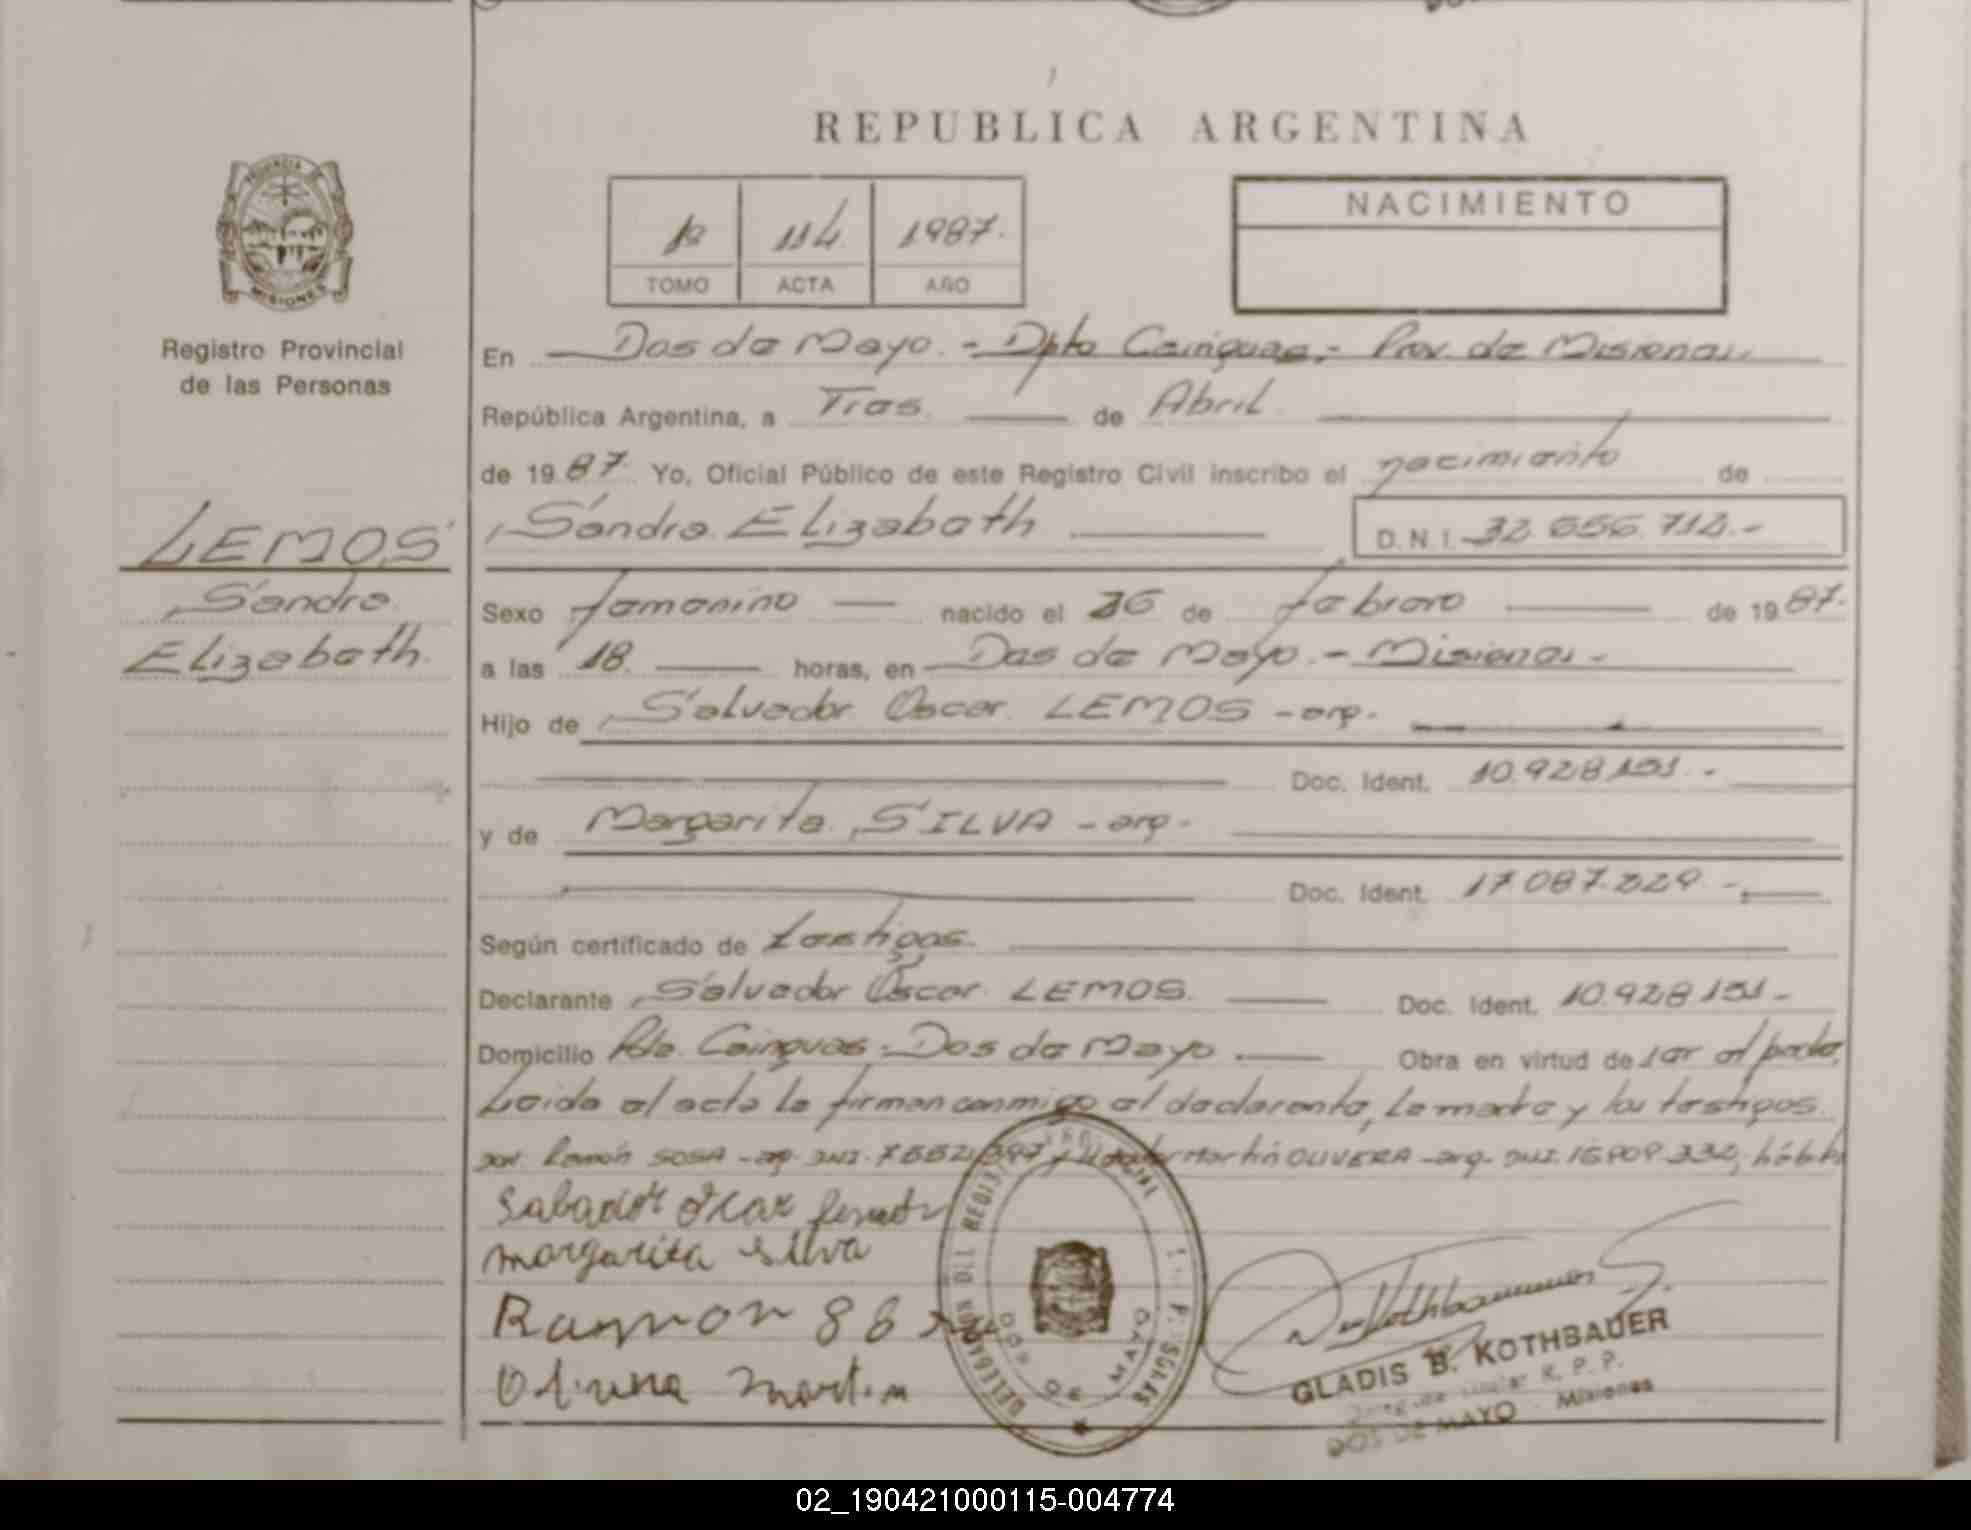 REPUBLICA ARGENTINA
PROVINCIA DE
MISIONES
Registro Provincial
de las Personas
1º 114 1987.
TOMO ACTA AÑO
NACIMIENTO
En Dos de Mayo. - Dpto Cainguas, - Prov. de Misiones.
República Argentina, a Tres. de Abril
de 1987. Yo, Oficial Público de este Registro Civil inscribo el nacimiento de
LEMOS
Sandra Elizabeth
D.N.I. 32.656.712.-
Sandra
Sexo femenino nacido el 26 de febrero de 1987.
Elizabeth.
a las 18. horas, en Dos de Mayo. - Misiones -
Hijo de Salvador Oscar LEMOS - arg.
Doc. Ident. 10.928.151. -
y de Margarita SILVA - arg.
Doc. Ident. 17.087.229 -
Según certificado de testigos.
Declarante Salvador Oscar LEMOS. Doc. Ident. 10.928.151 -
Domicilio Pdo. Cainguas - Dos de Mayo Obra en virtud de ser el padre,
Leida el acta la firman conmigo el declarante, la madre y los testigos
Ramón SOSA - arg. DNI. Martín OLIVERA - arg. DNI.
margarita silva
Ramon
martin
DOS DE MAYO
GLADIS B. KOTHBAUER
R. P. P.
DOS DE MAYO - Misiones
02_190421000115-004774